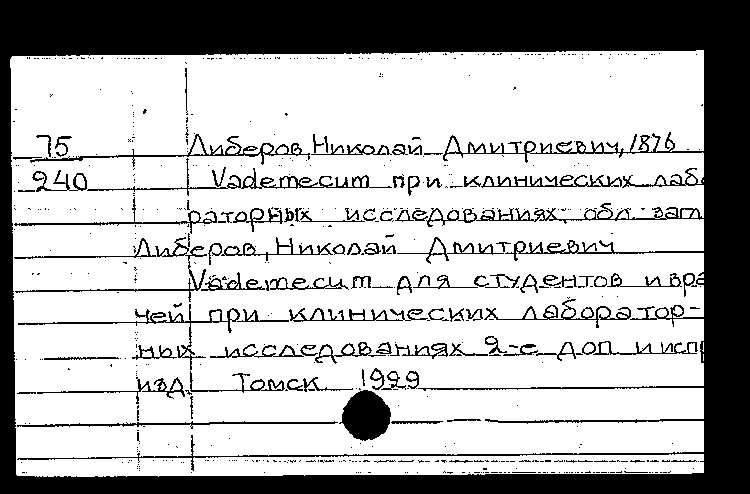 75
240
Либеров, Николай Дмитриевич, 1876
Vademecum при клинических лабо
раторных исследованиях; обл. загл
Либеров, Николай Дмитриевич
Vademecum для студентов и вра
чей при клинических лаборатор-
ных исследованиях 2-е доп и испр
изд. Томск 1929